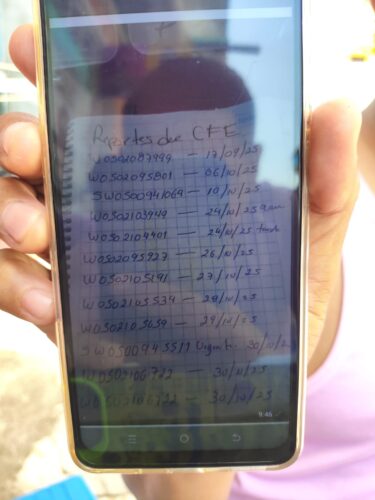 Reportes de CFE
W0502087999 — 17/09/25
W0502095801 — 06/10/25
SW0500941069 - 10/10/25
W0502103949 — 24/10/25
W0502104401 — 24/10/25 tarde
W0502095927 — 26/10/25
W0502105191 — 27/10/25
W0502105534 — 28/10/25
W0502105659 — 29/10/25
Urgente 30/10/2
W0502106722 — 30/10/25
30/10/25
9:46